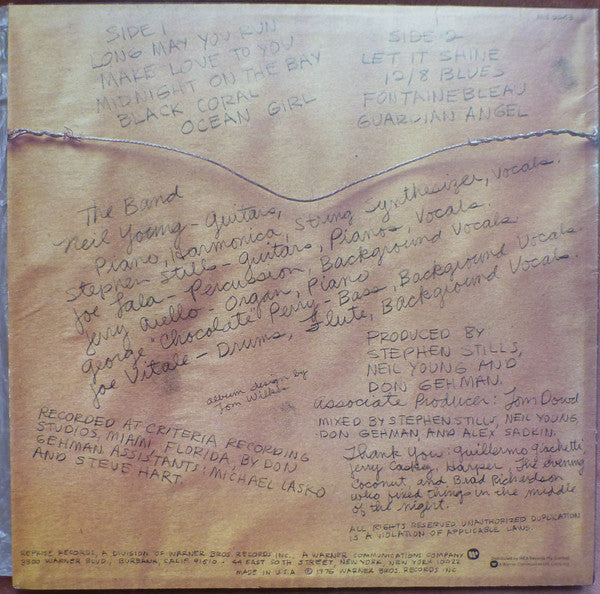 MS 2253
SIDE 1
LONG MAY YOU RUN
MAKE LOVE TO YOU
MIDNIGHT ON THE BAY
BLACK CORAL
OCEAN GIRL
SIDE 2
LET IT SHINE
12/8 BLUES
FONTAINEBLEAU
GUARDIAN ANGEL
The Band
Neil Young - Guitars,
Piano, Harmonica, String Synthesizer, Vocals.
Stephen Stills - Guitars, Pianos, Vocals.
Joe Lala - Percussion, Background Vocals
Jerry Aiello - Organ, Piano
George "Chocolate" Perry - Bass, Background Vocals.
Joe Vitale - Drums, Flute, Background Vocals.
album design by
Tom Wilkes
PRODUCED BY
STEPHEN STILLS,
NEIL YOUNG AND
DON GEHMAN.
Associate Producer: Tom Dowd
MIXED BY STEPHEN STILLS, NEIL YOUNG,
DON GEHMAN AND ALEX SADKIN.
RECORDED AT CRITERIA RECORDING
STUDIOS, MIAMI FLORIDA, BY DON
GEHMAN. ASSISTANTS: MICHAEL LASKO
AND STEVE HART
Thank You: Guillermo Giachetti
Jerry Caskey, Harper, The Evening
Coconut, and Brad Richardson
who fixed things in the middle
of the night.
ALL RIGHTS RESERVED UNAUTHORIZED DUPLICATION
IS A VIOLATION OF APPLICABLE LAWS.
REPRISE RECORDS, A DIVISION OF WARNER BROS RECORDS INC., A WARNER COMMUNICATIONS COMPANY
3300 WARNER BLVD., BURBANK, CALIF. 91510 · 44 EAST 50TH STREET, NEW YORK, NEW YORK 10022
MADE IN U.S.A. © 1976 WARNER BROS. RECORDS INC.